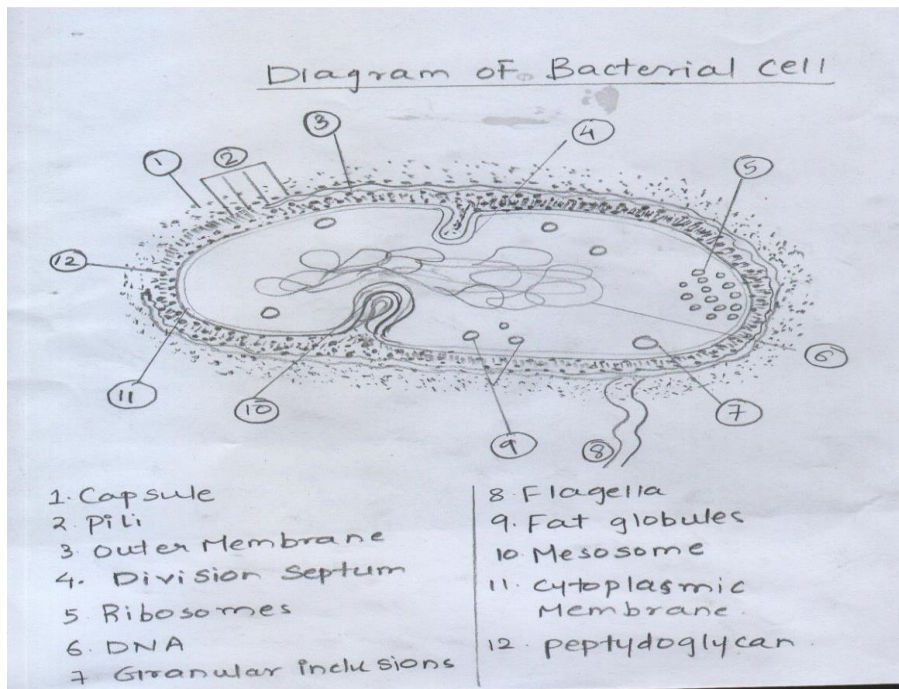 Diagram of Bacterial cell
3
4
1
2
5
12
6
11
10
7
9
8
1. Capsule
2. Pili
3 Outer Membrane
4. Division Septum
5 Ribosomes
6. DNA
7 Granular inclusions
8. Flagella
9. Fat globules
10 Mesosome
11. cytoplasmic
Membrane.
12. peptydoglycan.